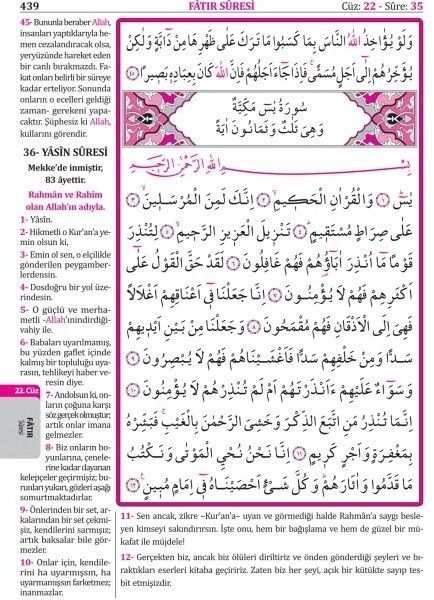 439
FÂTIR SÛRESİ
Cüz: 22 - Sûre: 35
45- Bununla beraber Allah,
insanları yaptıklarıyla he-
men cezalandıracak olsa,
yeryüzünde hareket eden
bir canlı bırakmazdı. Fa-
kat onları belirli bir süreye
kadar erteliyor. Sonunda
onların o ecelleri geldiği
zaman- gerekeni yapa-
caktır. Şüphesiz ki Allah,
kullarını görendir.
36- YÂSÎN SÛRESİ
Mekke'de inmiştir,
83 âyettir.
Rahmân ve Rahîm
olan Allah'ın adıyla.
1- Yâsîn.
2- Hikmetli o Kur'an'a ye-
min olsun ki,
3- Emin ol sen, o elçilikle
gönderilen peygamber-
lerdensin.
4- Dosdoğru bir yol üze-
rindesin.
5- O güçlü ve merha-
metli -Allah'ınindirdiği-
vahiy ile.
6- Babaları uyarılmamış,
bu yüzden gaflet içinde
kalmış bir topluluğu uya-
rasın, tehlikeyi haber ve-
resin diye.
7- Andolsun ki, on-
ların çoğuna karşı
söz gerçek olmuştur;
artık onlar imana
gelmezler.
8- Biz onların bo-
yunlarına, çenele-
rine kadar dayanan
kelepçeler geçirmişiz; bu-
runları yukarı, gözleri aşağı
somurtmaktadırlar.
9- Önlerinden bir set, ar-
kalarından bir set çekmi-
şiz, kendilerini sarmışız;
artık baksalar bile gör-
mezler.
10- Onlar için, kendile-
rini ha uyarmışsın, ha
uyarmamışsın farketmez;
inanmazlar.
22. Cüz
FÂTIR
Sûresi
وَلَوْ يُؤَاخِذُ اللّٰهُ النَّاسَ بِمَا كَسَبُوا مَا تَرَكَ عَلٰى ظَهْرِهَا مِنْ دَٓابَّةٍ وَلٰكِنْ
يُؤَخِّرُهُمْ اِلٰٓى اَجَلٍ مُسَمًّىۚ فَاِذَا جَٓاءَ اَجَلُهُمْ فَاِنَّ اللّٰهَ كَانَ بِعِبَادِهٖ بَصٖيرًا ﴿٤٥﴾
سُورَةُ يٰسٓ مَكِّيَّةٌ
وَهِيَ ثَلٰثٌ وَثَمَانُونَ اٰيَةً
بِسْمِ اللّٰهِ الرَّحْمٰنِ الرَّحٖيمِ
يٰسٓ ﴿١﴾ وَالْقُرْاٰنِ الْحَكٖيمِ ﴿٢﴾ اِنَّكَ لَمِنَ الْمُرْسَلٖينَ ﴿٣﴾
عَلٰى صِرَاطٍ مُسْتَقٖيمٍ ﴿٤﴾ تَنْزٖيلَ الْعَزٖيزِ الرَّحٖيمِ ﴿٥﴾ لِتُنْذِرَ
قَوْمًا مَٓا اُنْذِرَ اٰبَٓاؤُ۬هُمْ فَهُمْ غَافِلُونَ ﴿٦﴾ لَقَدْ حَقَّ الْقَوْلُ عَلٰٓى
اَكْثَرِهِمْ فَهُمْ لَا يُؤْمِنُونَ ﴿٧﴾ اِنَّا جَعَلْنَا فٖٓي اَعْنَاقِهِمْ اَغْلَالًا
فَهِيَ اِلَى الْاَذْقَانِ فَهُمْ مُقْمَحُونَ ﴿٨﴾ وَجَعَلْنَا مِنْ بَيْنِ اَيْدٖيهِمْ
سَدًّا وَمِنْ خَلْفِهِمْ سَدًّا فَاَغْشَيْنَاهُمْ فَهُمْ لَا يُبْصِرُونَ ﴿٩﴾
وَسَوَٓاءٌ عَلَيْهِمْ ءَاَنْذَرْتَهُمْ اَمْ لَمْ تُنْذِرْهُمْ لَا يُؤْمِنُونَ ﴿١٠﴾
اِنَّمَا تُنْذِرُ مَنِ اتَّبَعَ الذِّكْرَ وَخَشِيَ الرَّحْمٰنَ بِالْغَيْبِۚ فَبَشِّرْهُ
بِمَغْفِرَةٍ وَاَجْرٍ كَرٖيمٍ ﴿١١﴾ اِنَّا نَحْنُ نُحْيِ الْمَوْتٰى وَنَكْتُبُ
مَا قَدَّمُوا وَاٰثَارَهُمْؕ وَكُلَّ شَيْءٍ اَحْصَيْنَاهُ فٖٓي اِمَامٍ مُبٖينٍ ﴿١٢﴾
11- Sen ancak, zikre –Kur'an'a– uyan ve görmediği halde Rahmân'a saygı besle-
yen kimseyi sakındırırsın. İşte onu, hem bir bağışlama ve hem de güzel bir mü-
kafat ile müjdele!
12- Gerçekten biz, ancak biz ölüleri diriltiriz ve önden gönderdiği şeyleri ve bı-
raktıkları eserleri kitaba geçiririz. Zaten biz her şeyi, açık bir kütükte sayıp tes-
bit etmişizdir.